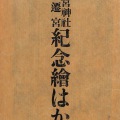 宮神社
遷宮
紀念繪はか